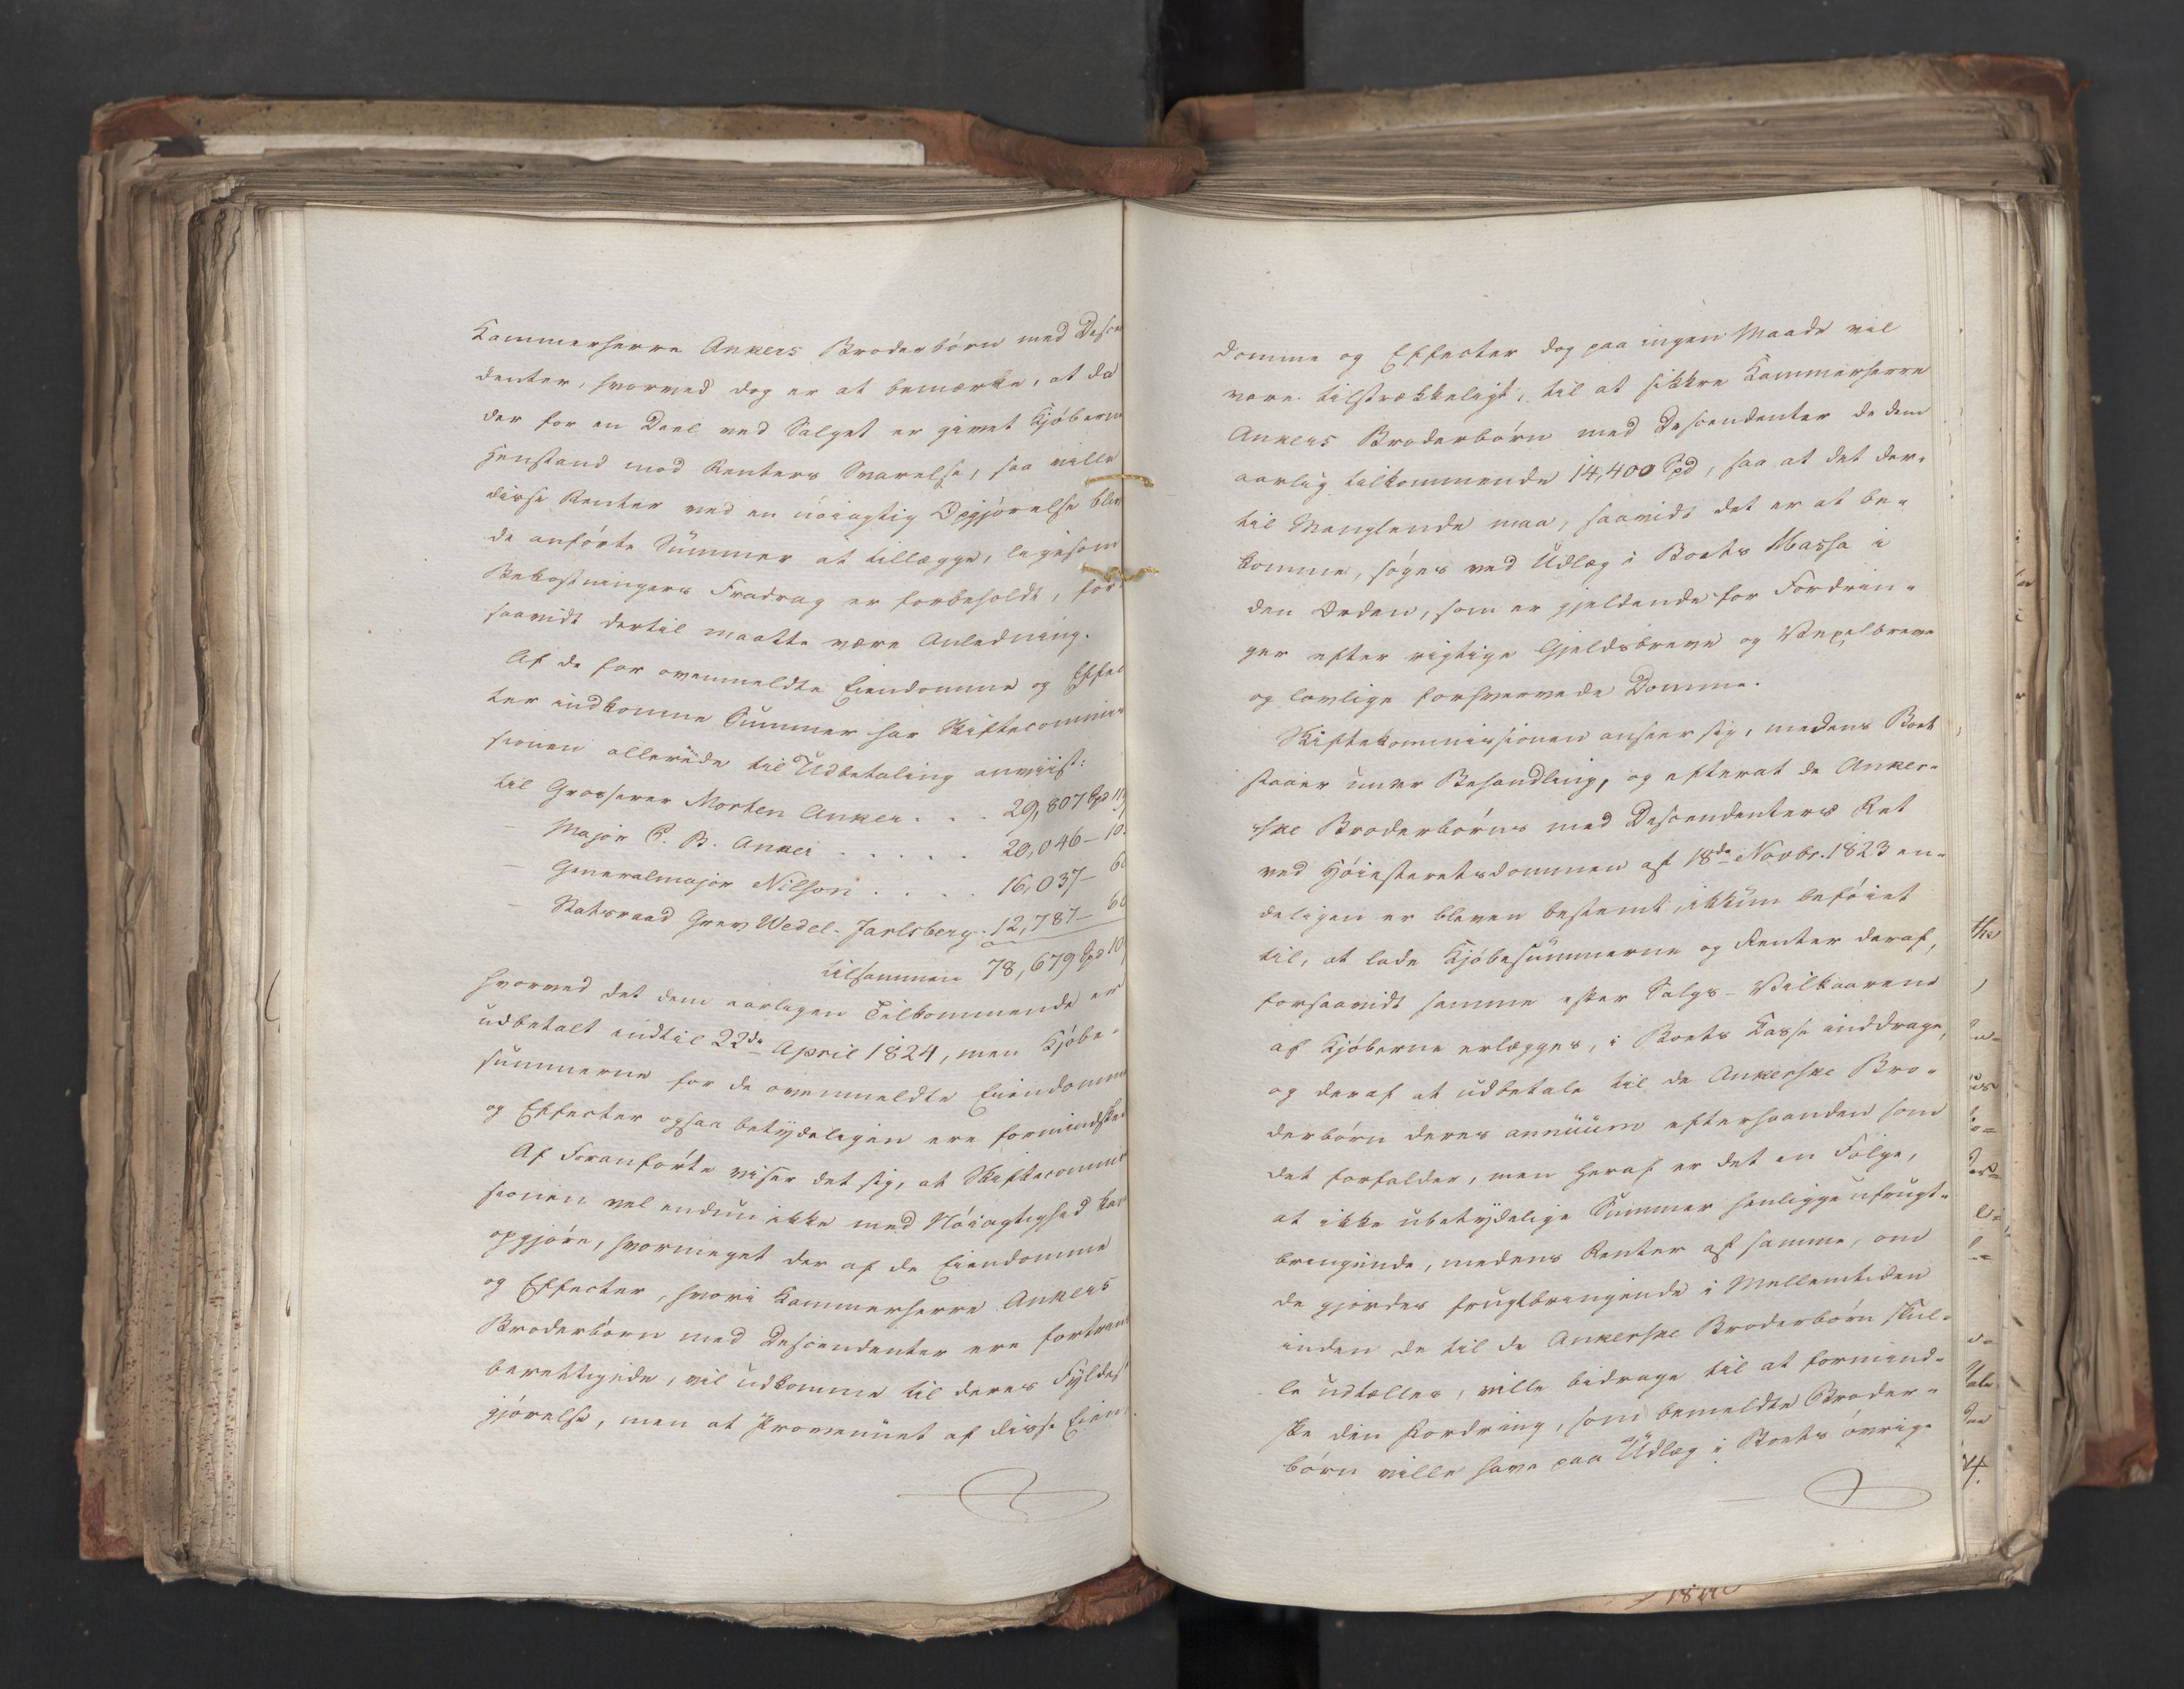 Kammerherre Ankers Broderbørn med Descen
denter, hvorved dog er at bemærke, at da
der for en Deel ved Salget er givet Kjøberne
Henstand mod Renters Svarelse, saa ville
disse Renter ved en nøiagtig Opgjørelse blive
de anførte Summer at tillægge, ligesom
Bekostningers Fradrag er forbeholdt, for
saavidt dertil maatte være Anledning.
Af de for ovenmeldte Eiendomme og Effec
ter indkomne Summer har Skiftecommis
sionen allerede til Udbetaling anviist:
til Grosserer Morten Anker . . . 29,807 Spd 11
— Major P. B. Anker . . . . . 20,046 — 10
— Generalmajor Nilson . . . . 16,037 — 60
— Statsraad Grev Wedel-Jarlsberg . 12,787 — 60
tilsammen 78,679 Spd 10
hvorved det dem aarligen Tilkommende er
udbetalt indtil 22de April 1824, men Kjøbe-
summerne for de ovenmeldte Eiendomme
og Effecter ogsaa betydeligen ere formindskede
Af Foranførte viser det sig, at Skiftecommis
sionen vel endnu ikke med Nøiagtighed kan
opgjøre, hvormeget der af de Eiendomme
og Effecter, hvori Kammerherre Ankers
Broderbørn med Descendenter ere fortrins
berettigede, vil udkomme til deres Fyldest
gjørelse, men at Provenüet af disse Eien
domme og Effecter dog paa ingen Maade vil
være tilstrækkeligt, til at sikkre Kammerherre
Ankers Broderbørn med Descendenter de dem
aarlig tilkommende 14,400 Spd, saa at det der-
til Manglende maa, saavidt det er at be-
komme, søges ved Udlæg i Boets Massa i
den Orden, som er gjeldende for Fordrin-
ger efter rigtige Gjeldsbreve og Vexelbreve
og lovlige forhvervede Domme.
Skiftekommissionen anseer sig, medens Boet
staaer under Behandling, og efterat de Anker-
ske Broderbørns med Descendenters Ret
ved Høiesteretsdommen af 18de Novbr. 1823 en-
deligen er bleven bestemt, ikkun beføiet
til, at lade Kjøbesummerne og Renter deraf,
forsaavidt samme efter Salgs-Vilkaarene
af Kjøberne erlægges, i Boets Kasse inddrage,
og deraf at udbetale til de Ankerske Bro-
derbørn deres annuum efterhaanden som
det forfalder, men heraf er det en Følge,
at ikke ubetydelige Summer henligge ufrugt-
bringende, medens Renter af samme, om
de gjordes frugtbringende i Mellemtiden
inden de til de Ankerske Broderbørn skul-
le udtælles, ville bidrage til at formind-
ske den Fordring, som bemeldte Broder-
børn ville have paa Udlæg i Boets øvrige